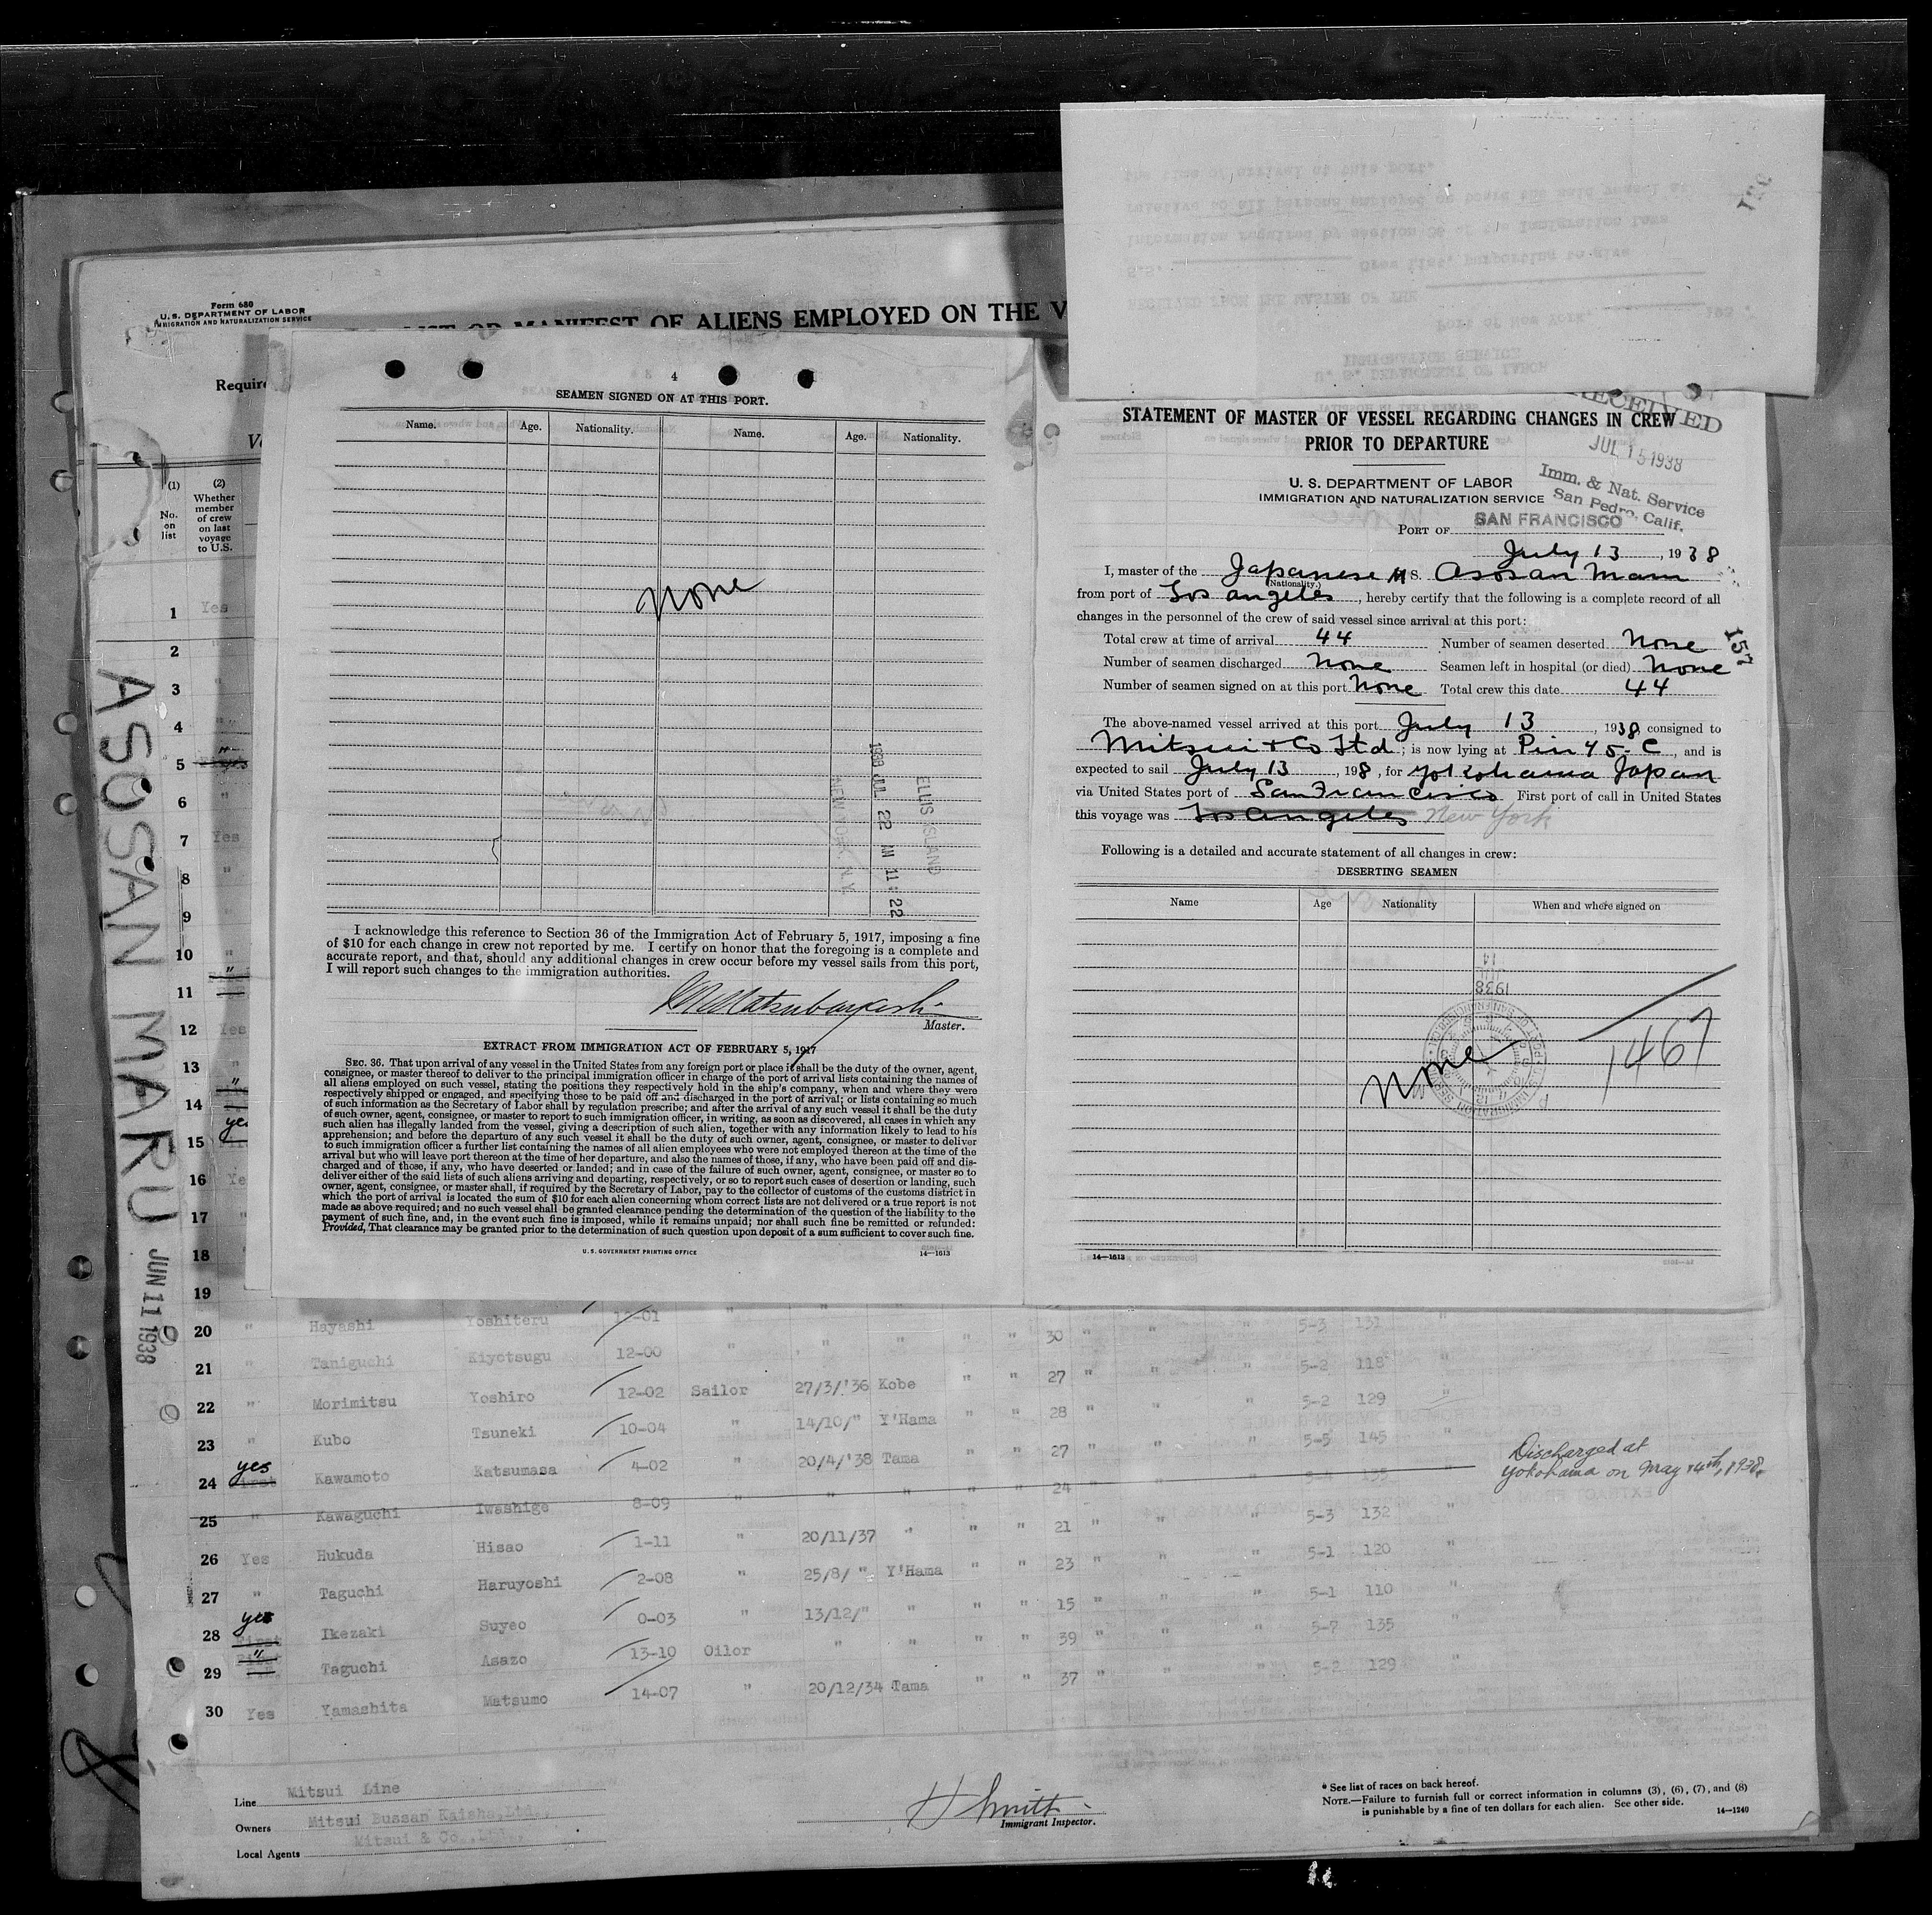 Form 680
U. S. DEPARTMENT OF LABOR
IMMIGRATION AND NATURALIZATION SERVICE
LIST OR MANIFEST OF ALIENS EMPLOYED ON THE V
Require
(1)
No.
on
list
(2)
Whether
member
of crew
on last
voyage
to U.S.
1 Yes
2 "
3 "
4 "
5 "
6 "
7 Yes
8 "
9 "
10 "
11 "
12 Yes
13 "
14 "
15 yes
16 Ye
17 "
18
19
ASOSAN MARU
JUN 11 1938
4
SEAMEN SIGNED ON AT THIS PORT.
Name. Age. Nationality. Name. Age. Nationality.
None
ELLIS ISLAND
1938 JUL 22 AM 11:22
NEW YORK, N.Y.
I acknowledge this reference to Section 36 of the Immigration Act of February 5, 1917, imposing a fine
of $10 for each change in crew not reported by me. I certify on honor that the foregoing is a complete and
accurate report, and that, should any additional changes in crew occur before my vessel sails from this port,
I will report such changes to the immigration authorities.
Matsubayashi
Master.
EXTRACT FROM IMMIGRATION ACT OF FEBRUARY 5, 1917
SEC. 36. That upon arrival of any vessel in the United States from any foreign port or place it shall be the duty of the owner, agent,
consignee, or master thereof to deliver to the principal immigration officer in charge of the port of arrival lists containing the names of
all aliens employed on such vessel, stating the positions they respectively hold in the ship's company, when and where they were
respectively shipped or engaged, and specifying those to be paid off and discharged in the port of arrival; or lists containing so much
of such information as the Secretary of Labor shall by regulation prescribe; and after the arrival of any such vessel it shall be the duty
of such owner, agent, consignee, or master to report to such immigration officer, in writing, as soon as discovered, all cases in which any
such alien has illegally landed from the vessel, giving a description of such alien, together with any information likely to lead to his
apprehension; and before the departure of any such vessel it shall be the duty of such owner, agent, consignee, or master to deliver
to such immigration officer a further list containing the names of all alien employees who were not employed thereon at the time of the
arrival but who will leave port thereon at the time of her departure, and also the names of those, if any, who have been paid off and dis-
charged and of those, if any, who have deserted or landed; and in case of the failure of such owner, agent, consignee, or master so to
deliver either of the said lists of such aliens arriving and departing, respectively, or so to report such cases of desertion or landing, such
owner, agent, consignee, or master shall, if required by the Secretary of Labor, pay to the collector of customs of the customs district in
which the port of arrival is located the sum of $10 for each alien concerning whom correct lists are not delivered or a true report is not
made as above required; and no such vessel shall be granted clearance pending the determination of the question of the liability to the
payment of such fine, and, in the event such fine is imposed, while it remains unpaid; nor shall such fine be remitted or refunded:
Provided, That clearance may be granted prior to the determination of such question upon deposit of a sum sufficient to cover such fine.
U. S. GOVERNMENT PRINTING OFFICE 14—1613
RECEIVED
JUL 15 1938
Imm. & Nat. Service
San Pedro, Calif.
STATEMENT OF MASTER OF VESSEL REGARDING CHANGES IN CREW
PRIOR TO DEPARTURE
U. S. DEPARTMENT OF LABOR
IMMIGRATION AND NATURALIZATION SERVICE
PORT OF SAN FRANCISCO
July 13, 1938
I, master of the Japanese M S. Asosan Maru
(Nationality.)
from port of Los Angeles, hereby certify that the following is a complete record of all
changes in the personnel of the crew of said vessel since arrival at this port:
Total crew at time of arrival 44 Number of seamen deserted None
Number of seamen discharged None Seamen left in hospital (or died) None
Number of seamen signed on at this port None Total crew this date 44
157
The above-named vessel arrived at this port July 13, 1938, consigned to
Mitsui & Co Ltd; is now lying at Pier 45-C, and is
expected to sail July 13, 198, for Yokohama Japan
via United States port of San Francisco First port of call in United States
this voyage was Los Angeles New York
Following is a detailed and accurate statement of all changes in crew:
DESERTING SEAMEN
Name Age Nationality When and where signed on
None
1467
14—1613
20 " Hayashi Yoshiteru 12-01 " " " " " 30 " " " 5-3 131 "
21 " Taniguchi Kiyotsugu 12-00 " " " " " 27 " " " 5-2 118 "
22 " Morimitsu Yoshiro 12-02 Sailor 27/3/'36 Kobe " " 28 " " " 5-2 129 "
23 " Kubo Tsuneki 10-04 " 14/10/" Y'Hama " " 27 " " " 5-5 145 "
24 yes First Kawamoto Katsumasa 4-02 " 20/4/'38 Tama " " 24
25 " Kawaguchi Iwashige 8-09 " " " " " 21 " " " 5-3 132 "
Discharged at
Yokohama on May 14th, 1938.
26 Yes Hukuda Hisao 1-11 " 20/11/37 " " " 23 " " " 5-1 120 "
27 " Taguchi Haruyoshi 2-08 " 25/8/ " Y'Hama " " 15 " " " 5-1 110 "
28 yes First Ikezaki Suyeo 0-03 " 13/12/" " " " 39 " " " 5-7 135 "
29 " First Taguchi Asazo 13-10 Oilor " " " " 37 " " " 5-2 129 "
30 Yes Yamashita Matsumo 14-07 " 20/12/34 Tama
Line Mitsui Line
Owners Mitsui Bussan Kaisha, Ltd.,
Local Agents Mitsui & Co., Ltd.,
H Smith
Immigrant Inspector.
* See list of races on back hereof.
NOTE.—Failure to furnish full or correct information in columns (3), (6), (7), and (8)
is punishable by a fine of ten dollars for each alien. See other side.
14—1240